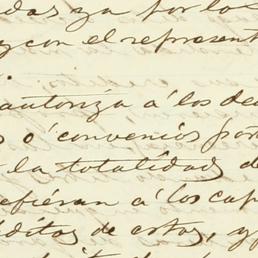 das ya por los
y con el represent
autoriza á los de
s o' convenios por
la totalidad d
efieran a los cap
éditos de estos, y